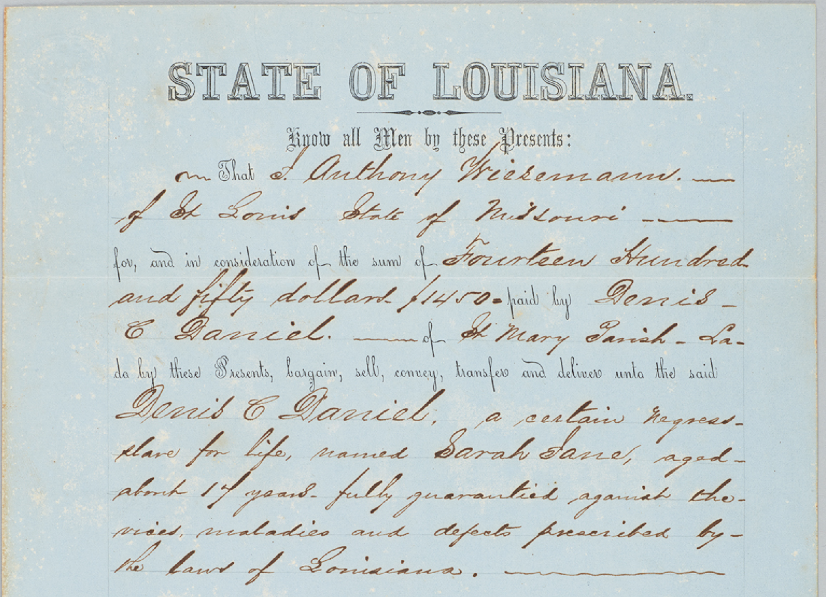 STATE OF LOUISIANA.
Know all Men by these Presents:
That I Anthony Wiesemann.
of St Louis State of Missouri
for, and in consideration of the sum of Fourteen Hundred
and fifty dollars $1450 paid by Denis
C Daniel. of St Mary Parish - La-
do by these Presents, bargain, sell, convey, transfer and deliver unto the said
Denis C Daniel, a certain Negress-
slave for life, named Sarah Jane, aged-
about 17 years- fully guarantied against the-
vices, maladies and defects prescribed by-
the laws of Louisiana.